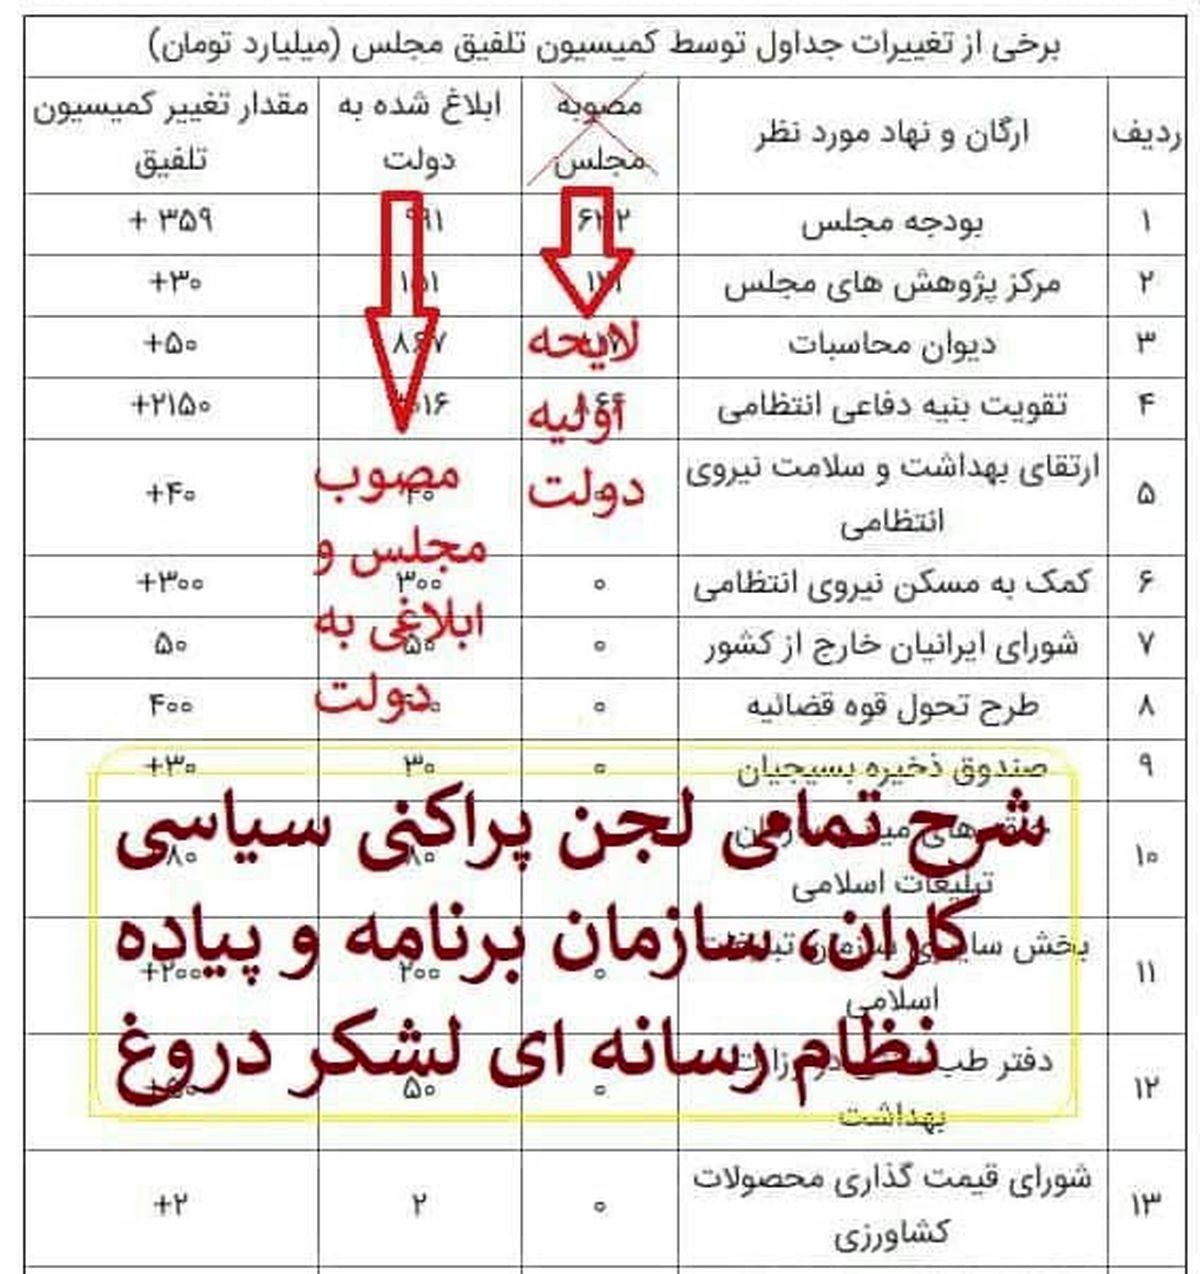 برخی از تغییرات جداول توسط کمیسیون تلفیق مجلس (میلیارد تومان)
ردیف
ارگان و نهاد مورد نظر
مصوبه
مجلس
ابلاغ شده به
دولت
مقدار تغییر کمیسیون
تلفیق
۱ بودجه مجلس ۹۹۱ + ۳۵۹
۲ مرکز پژوهش های مجلس ۱۵۱ +۳۰
۳ دیوان محاسبات ۸۶۷ +۵۰
۴ تقویت بنیه دفاعی انتظامی +۲۱۵۰
۵ ارتقای بهداشت و سلامت نیروی
انتظامی
۴۰ +۴۰
۶ کمک به مسکن نیروی انتظامی ۰ ۳۰۰ +۳۰۰
۷ شورای ایرانیان خارج از کشور ۰ ۵۰ ۵۰
۸ طرح تحول قوه قضائیه ۰ ۴۰۰
۹ صندوق ذخیره بسیجیان ۰ ۳۰ +۳۰
۱۰
تبلیغات اسلامی
۸۰
۱۱ بخش سازمان
اسلامی
۰ ۲۰۰ +۲۰۰
۱۲ دفتر طب
بهداشت
۰ ۵۰ +۵۰
۱۳ شورای قیمت گذاری محصولات
کشاورزی
۰ ۲ +۲
لایحه
اولیه
دولت
مصوب
مجلس و
ابلاغی به
دولت
شرح تمامی لجن پراکنی سیاسی
کاران، سازمان برنامه و پیاده
نظام رسانه ای لشکر دروغ